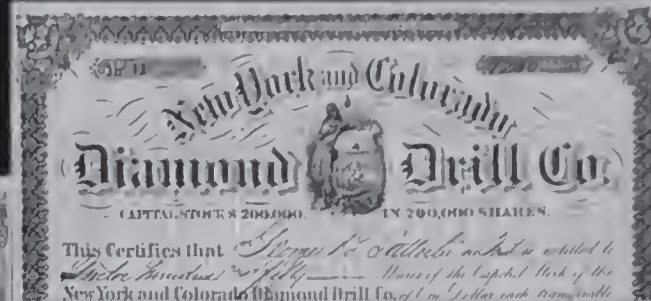 New York and Colorado
Diamond Drill Co.
CAPITAL STOCK $ 200,000. IN 200,000 SHARES.
This Certifies that is entitled to
Shares of the Capital Stock of the
New York and Colorado Diamond Drill Co. of One Dollar each transferable